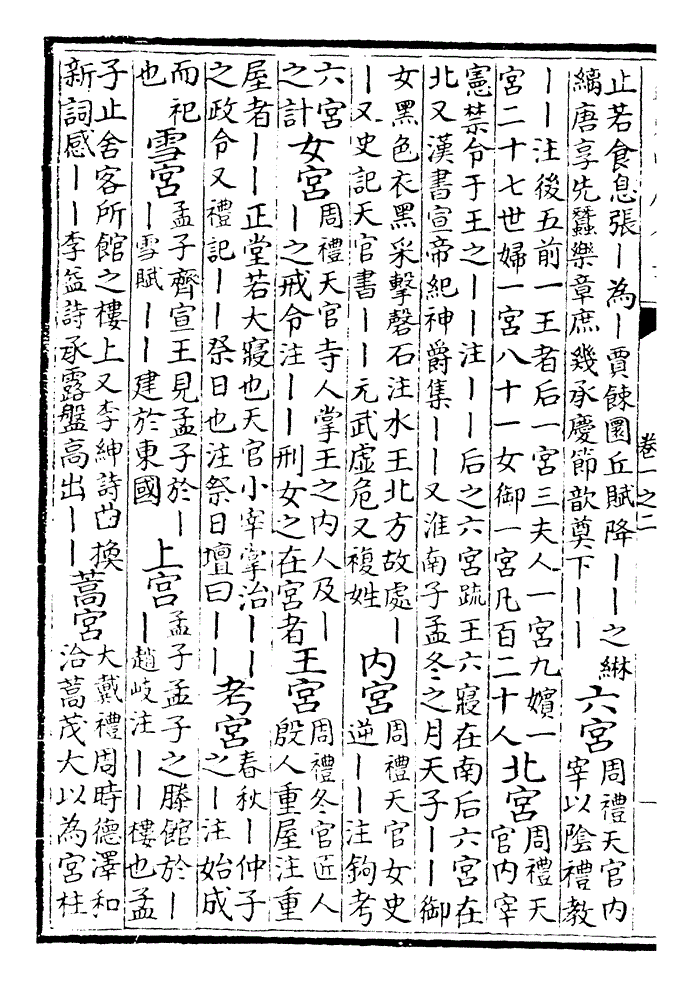 止若食息張｜為｜賈餗圜丘賦降｜｜之綝
繑唐享先蠶樂章庶幾承慶節歆奠下｜｜
六宮
周禮天官内
宰以陰禮教
｜｜注後五前一王者后一宮三夫人一宮九嬪一
宮二十七世婦一宮八十一女御一宮凡百二十人
北宮
周禮天
官内宰
憲禁令于王之｜｜注｜｜后之六宮䟽王六寢在南后六宮在
北又漢書宣帝紀神爵集｜｜又淮南子孟冬之月天子｜｜御
女黑色衣黑采擊磬石注水王北方故處｜
｜又史記天官書｜｜元武虛危又複姓
内宮
周禮天官女史
逆｜｜注鉤考
六宮
之計
女宮
周禮天官寺人掌王之内人及｜
｜之戒令注｜｜刑女之在宮者
王宮
周禮冬官匠人
殷人重屋注重
屋者｜｜正堂若大寢也天官小宰掌治｜｜
之政令又禮記｜｜祭日也注祭日壇曰｜｜
考宮
春秋｜仲子
之｜注始成
而祀
也
雪宮
孟子齊宣王見孟子於｜
｜雪賦｜｜建於東國
上宮
孟子孟子之滕館於｜
｜趙岐注｜｜樓也孟
子止舍客所館之樓上又李紳詩凸換
新詞感｜｜李益詩承露盤高出｜｜
蒿宮
大戴禮周時德澤和
洽蒿茂大以為宮柱
卷一之二
一